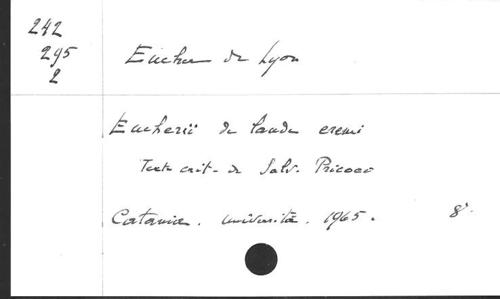 242
295
2
Eucher de Lyon
Eucherii de laude eremi
Texte crit. de Salv. Pricoco
Catania. Università. 1965. 8°.